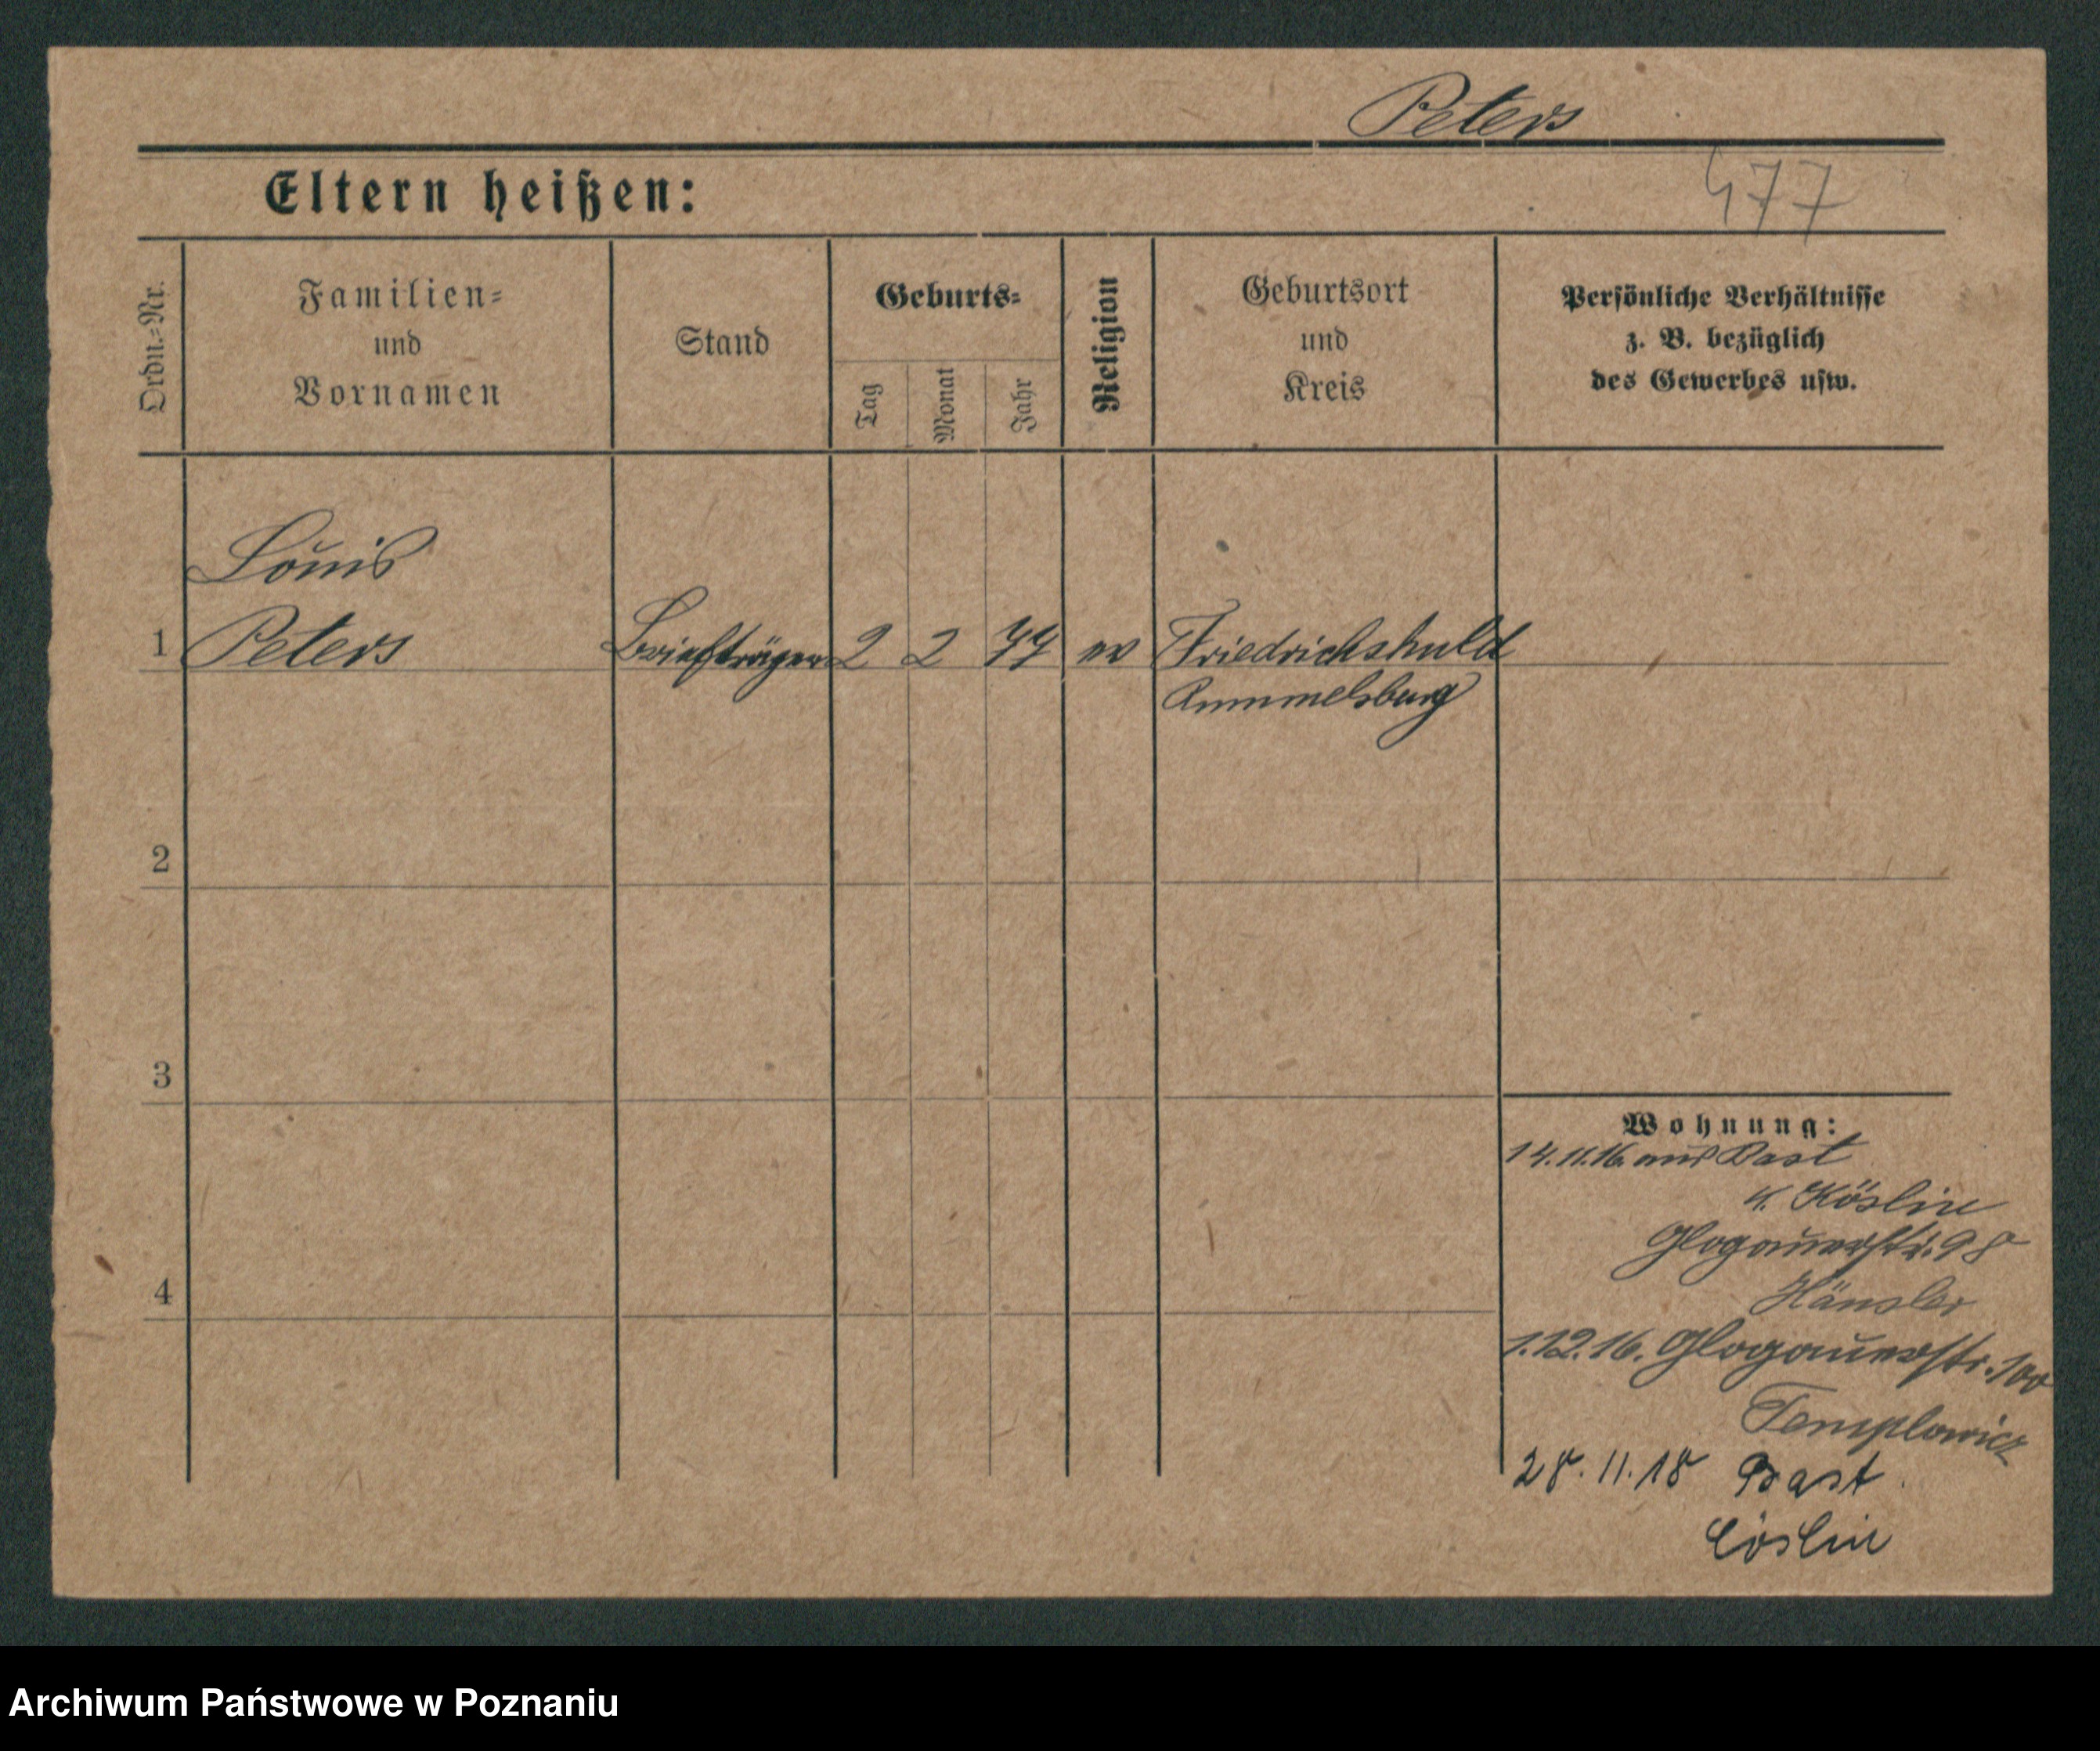 Peters
Eltern heißen:
477
Ordn.-Nr.
Familien-
und
Vornamen
Stand
Geburts-
Tag
Monat
Jahr
Religion
Geburtsort
und
Kreis
Persönliche Verhältnisse
z. B. bezüglich
des Gewerbes usw.
Louis
1 Peters Briefträger 2 2 77 ev Friedrichshuld
Rummelsburg
2
3
4
Wohnung:
14.11.16. aus Bast
K. Köslin
Glogauerstr. 98
Hänsler
1.12.16. Glogauerstr. 100
Templowicz
28.11.18 Bast
Cöslin
Archiwum Państwowe w Poznaniu